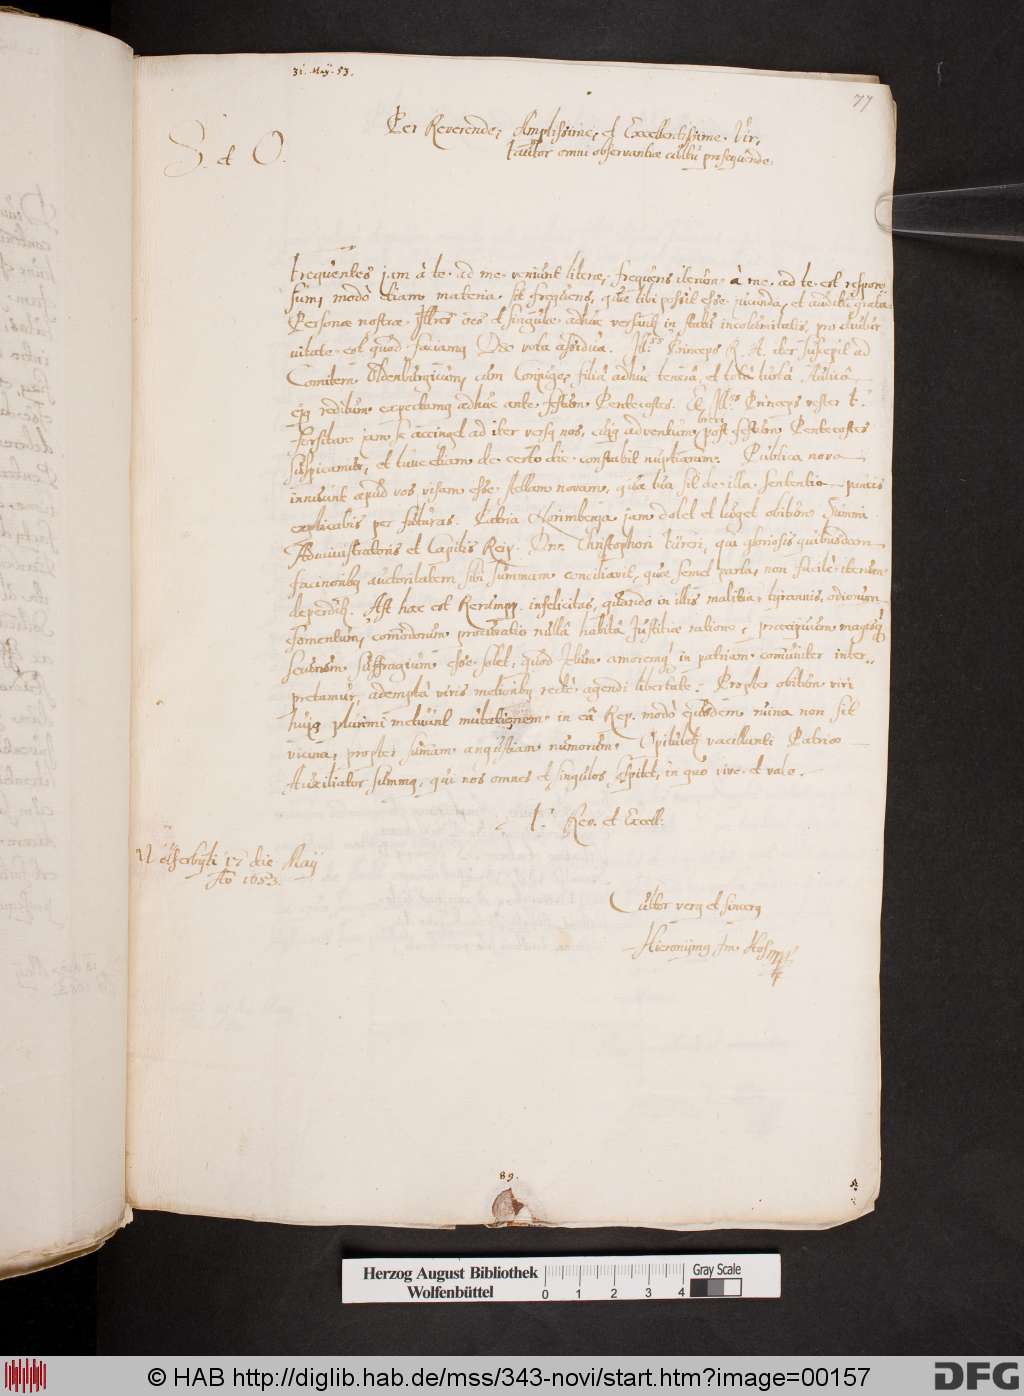 31. Maÿ. 53.
77
S. et O.
Per Reverende, Amplissime, et Excellentissime Vir,
Fautor omni observantiae cultu prosequende
Frequentes jam à te ad me veniunt literae, frequens iterum à me ad te est respon-
sum, modò etiam materia sit frequens, quae tibi possit esse jucunda, et auditu grata.
Personae nostrae Illres oes et singulae adhuc versant in statu incolumitatis, pro
vitate est quod faciamus Deo vota assidua. Ill.ss Princeps R. A. iter suscepit ad
Comitem Oldenburgicum, cum Conjuge, filia adhuc tenera, et tota turba Aulicâ
ejus reditum expectamus adhuc ante festum Pentecostes. Et Ill.ss Princeps vester
jam se accinget ad iter versus nos, cujus adventum brevi post festum Pentecostes
suspicamur, et tunc etiam de certo die constabit nuptiarum. Publica nova
innuunt apud vos visam esse stellam novam, quae tua sit de illa sententia paucis
explicabis per futuras. Patria Norimberga jam dolet et luget obitum Summi
Administratoris et Capitis Reip. Dnr. Christophori Füreri, qui gloriosis quibusdam
facinoribus auctoritatem sibi summam conciliavit, quae semel parta, non facilè iterum
deperditur. Ast haec est Rerumpp. infelicitas, quando in illis malitia, tyrannis, odiorum
fomentum, comodorum procuratio nullâ habitâ Justitiae ratione, praecipuum magisque
securum suffragium esse solet, quod Itum amoremque in patriam comuniter inter-
pretamur, adempta viris melioribus rectè agendi libertate. Propter obitum viri
hujus plurimi metuunt mutationem in eâ Rep. modò ejusdem ruina non sit
vicina, propter summam angustiam numorum. Opitulet vacillanti Patriae
Auxiliator summus, qui nos omnes et singulos sospitet, in quo vive et vale.
T. Rev. et Excell.
Wolferbyti 17 die Maij
Ao 1653.
Cultor verus et sincerus
Hieronymus Im Hof
89.
Herzog August Bibliothek
Wolfenbüttel
0 1 2 3 4
Gray Scale
© HAB http://diglib.hab.de/mss/343-novi/start.htm?image=00157
DFG